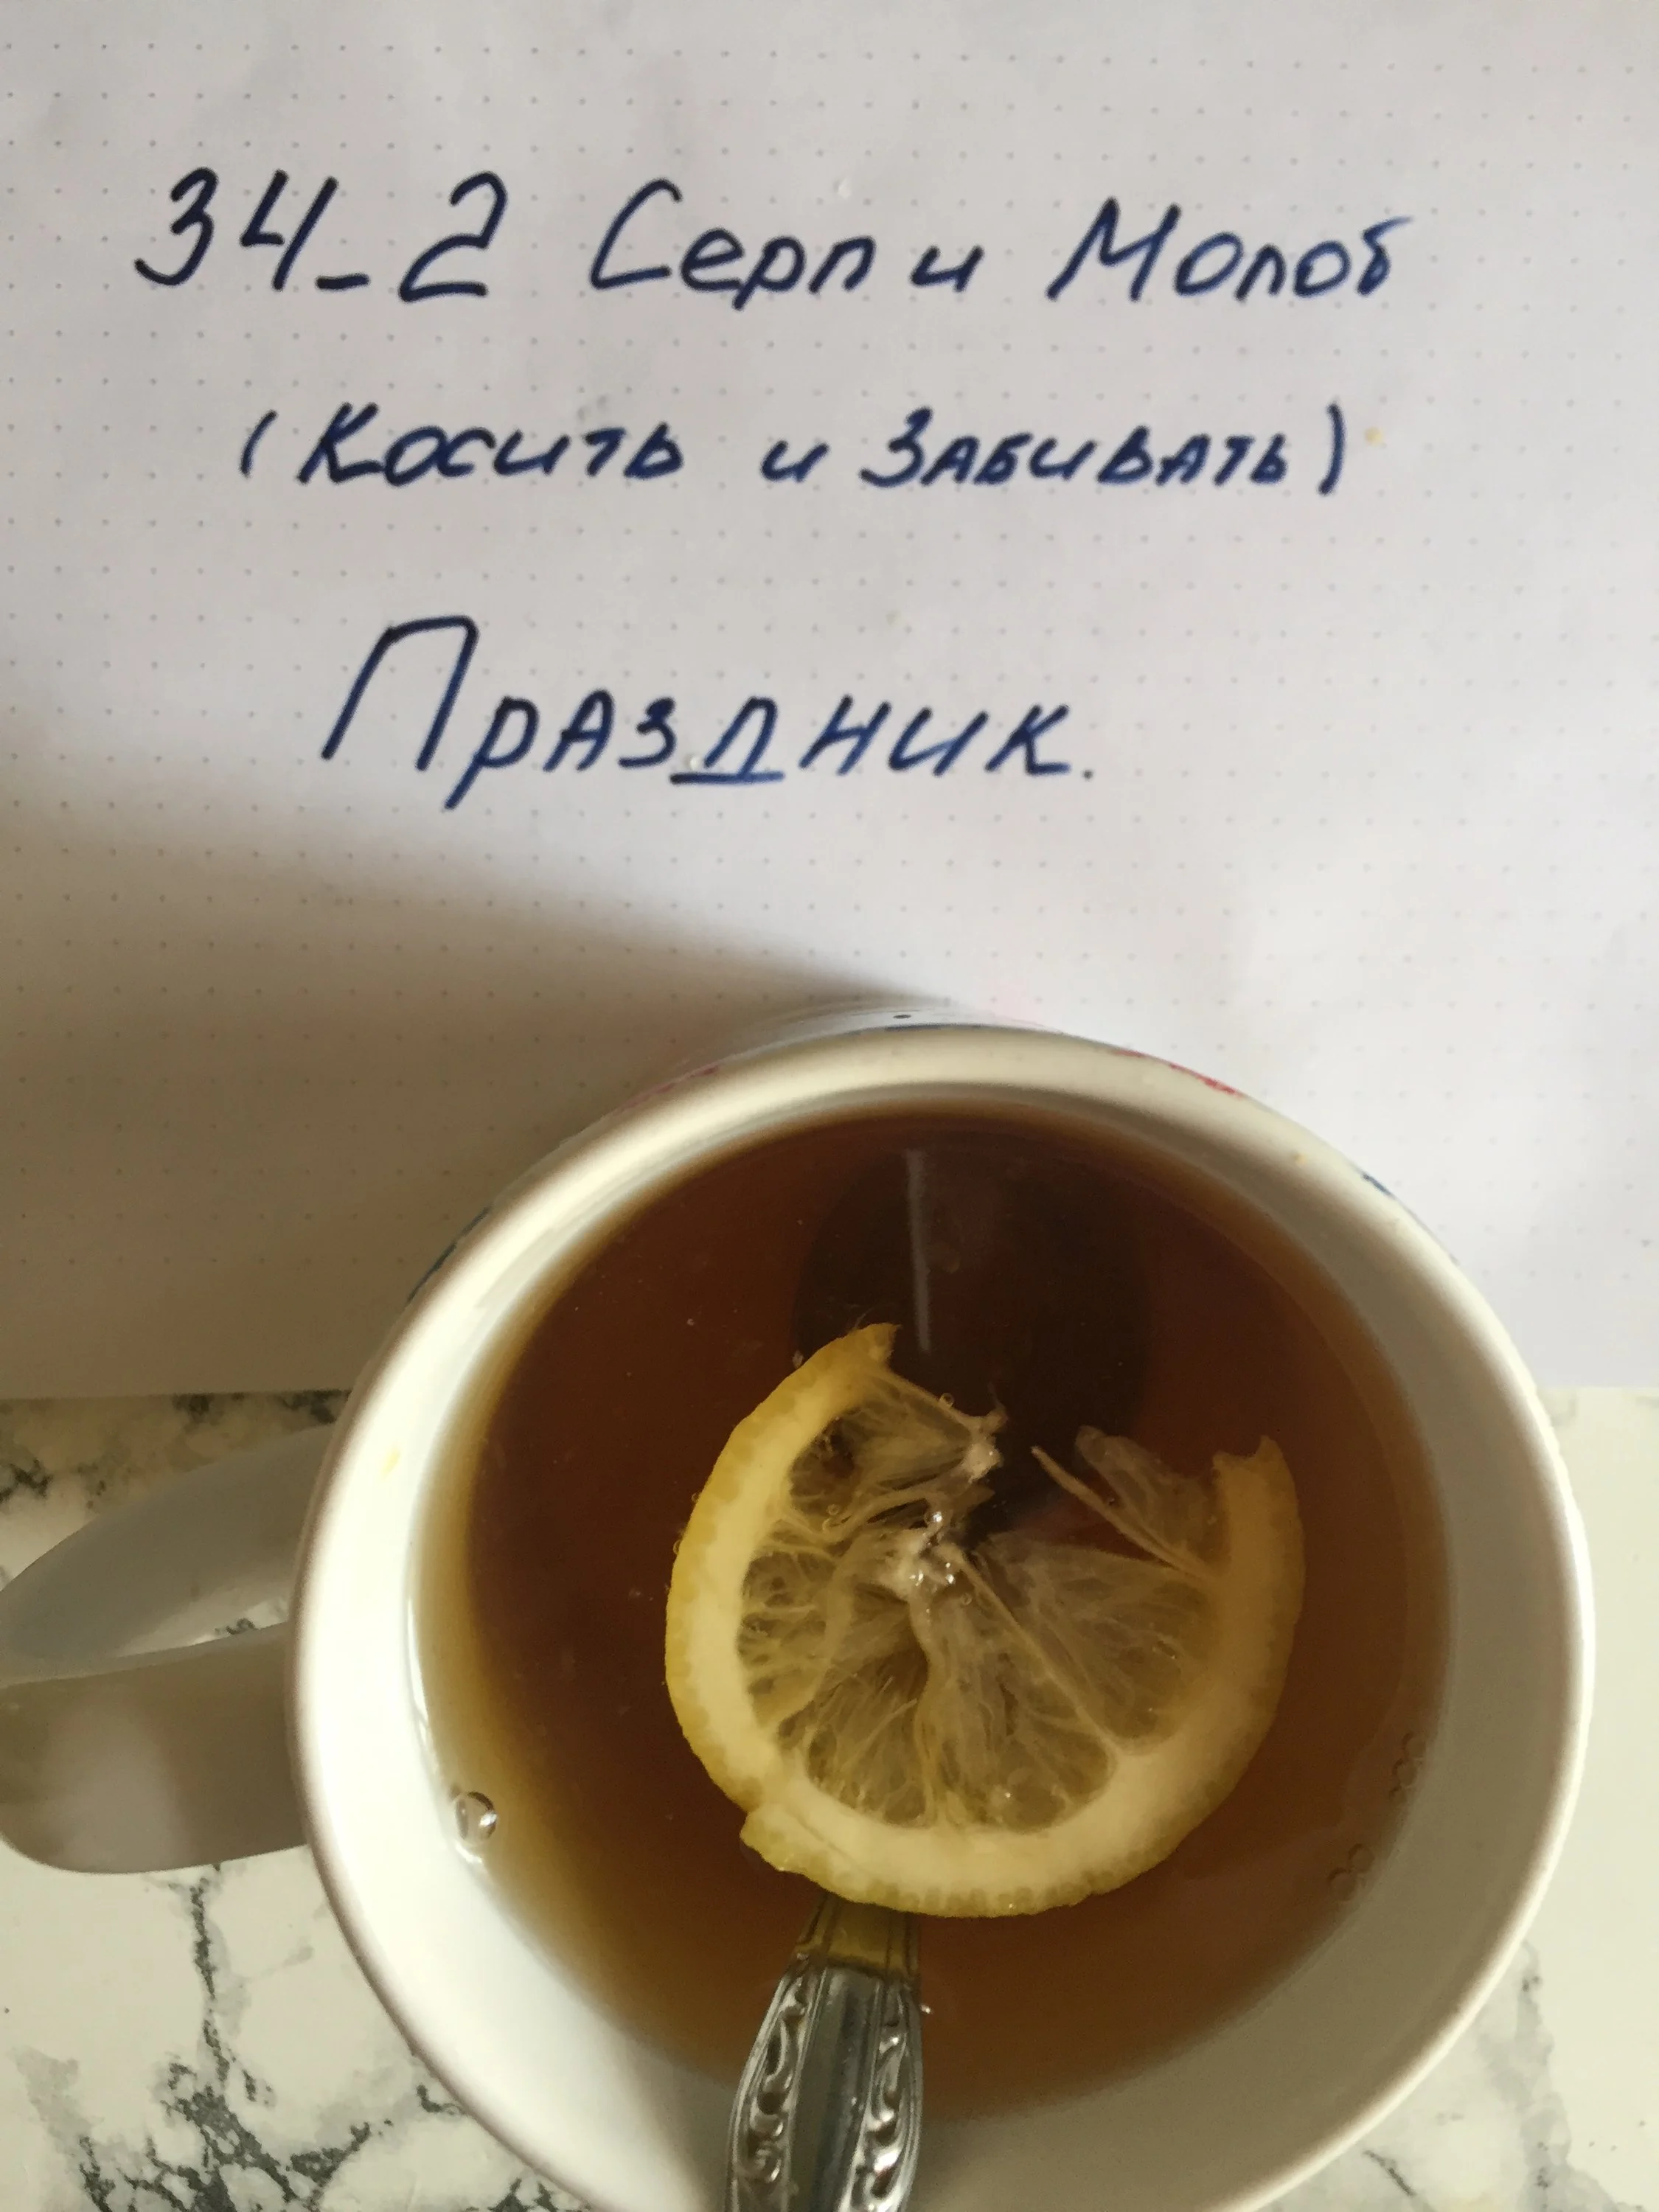 34-2 Серп и Молоб
(Косить и Забивать)
Праздник.